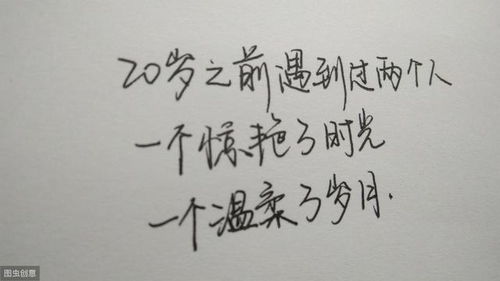 20岁之前遇到过两个人
一个惊艳了时光
一个温柔了岁月.
图虫创意